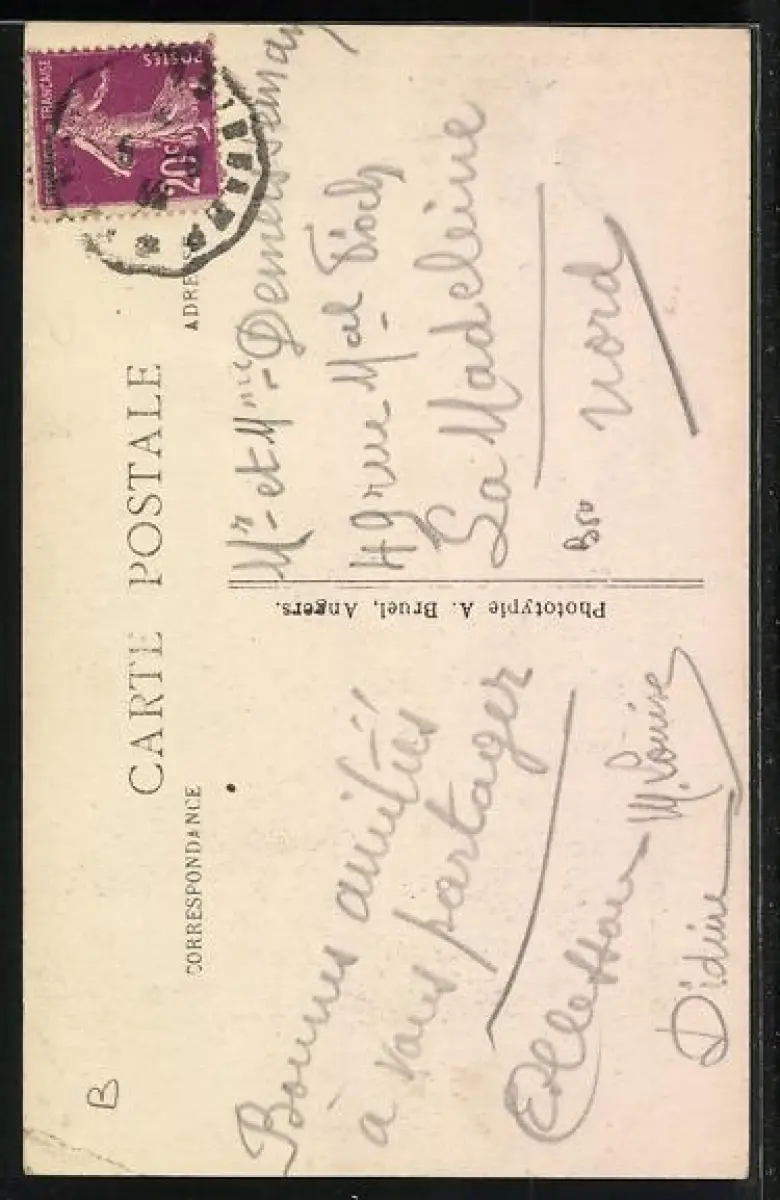 CARTE POSTALE
CORRESPONDANCE
ADRESSE
FRANÇAISE
POSTES
20c
Bonnes amitiés
à vous partager
M. Louise
Didine
Phototypie A. Bruel, Angers.
Mr et Mme
49 rue Mal Foch
La Madeleine
Nord
B